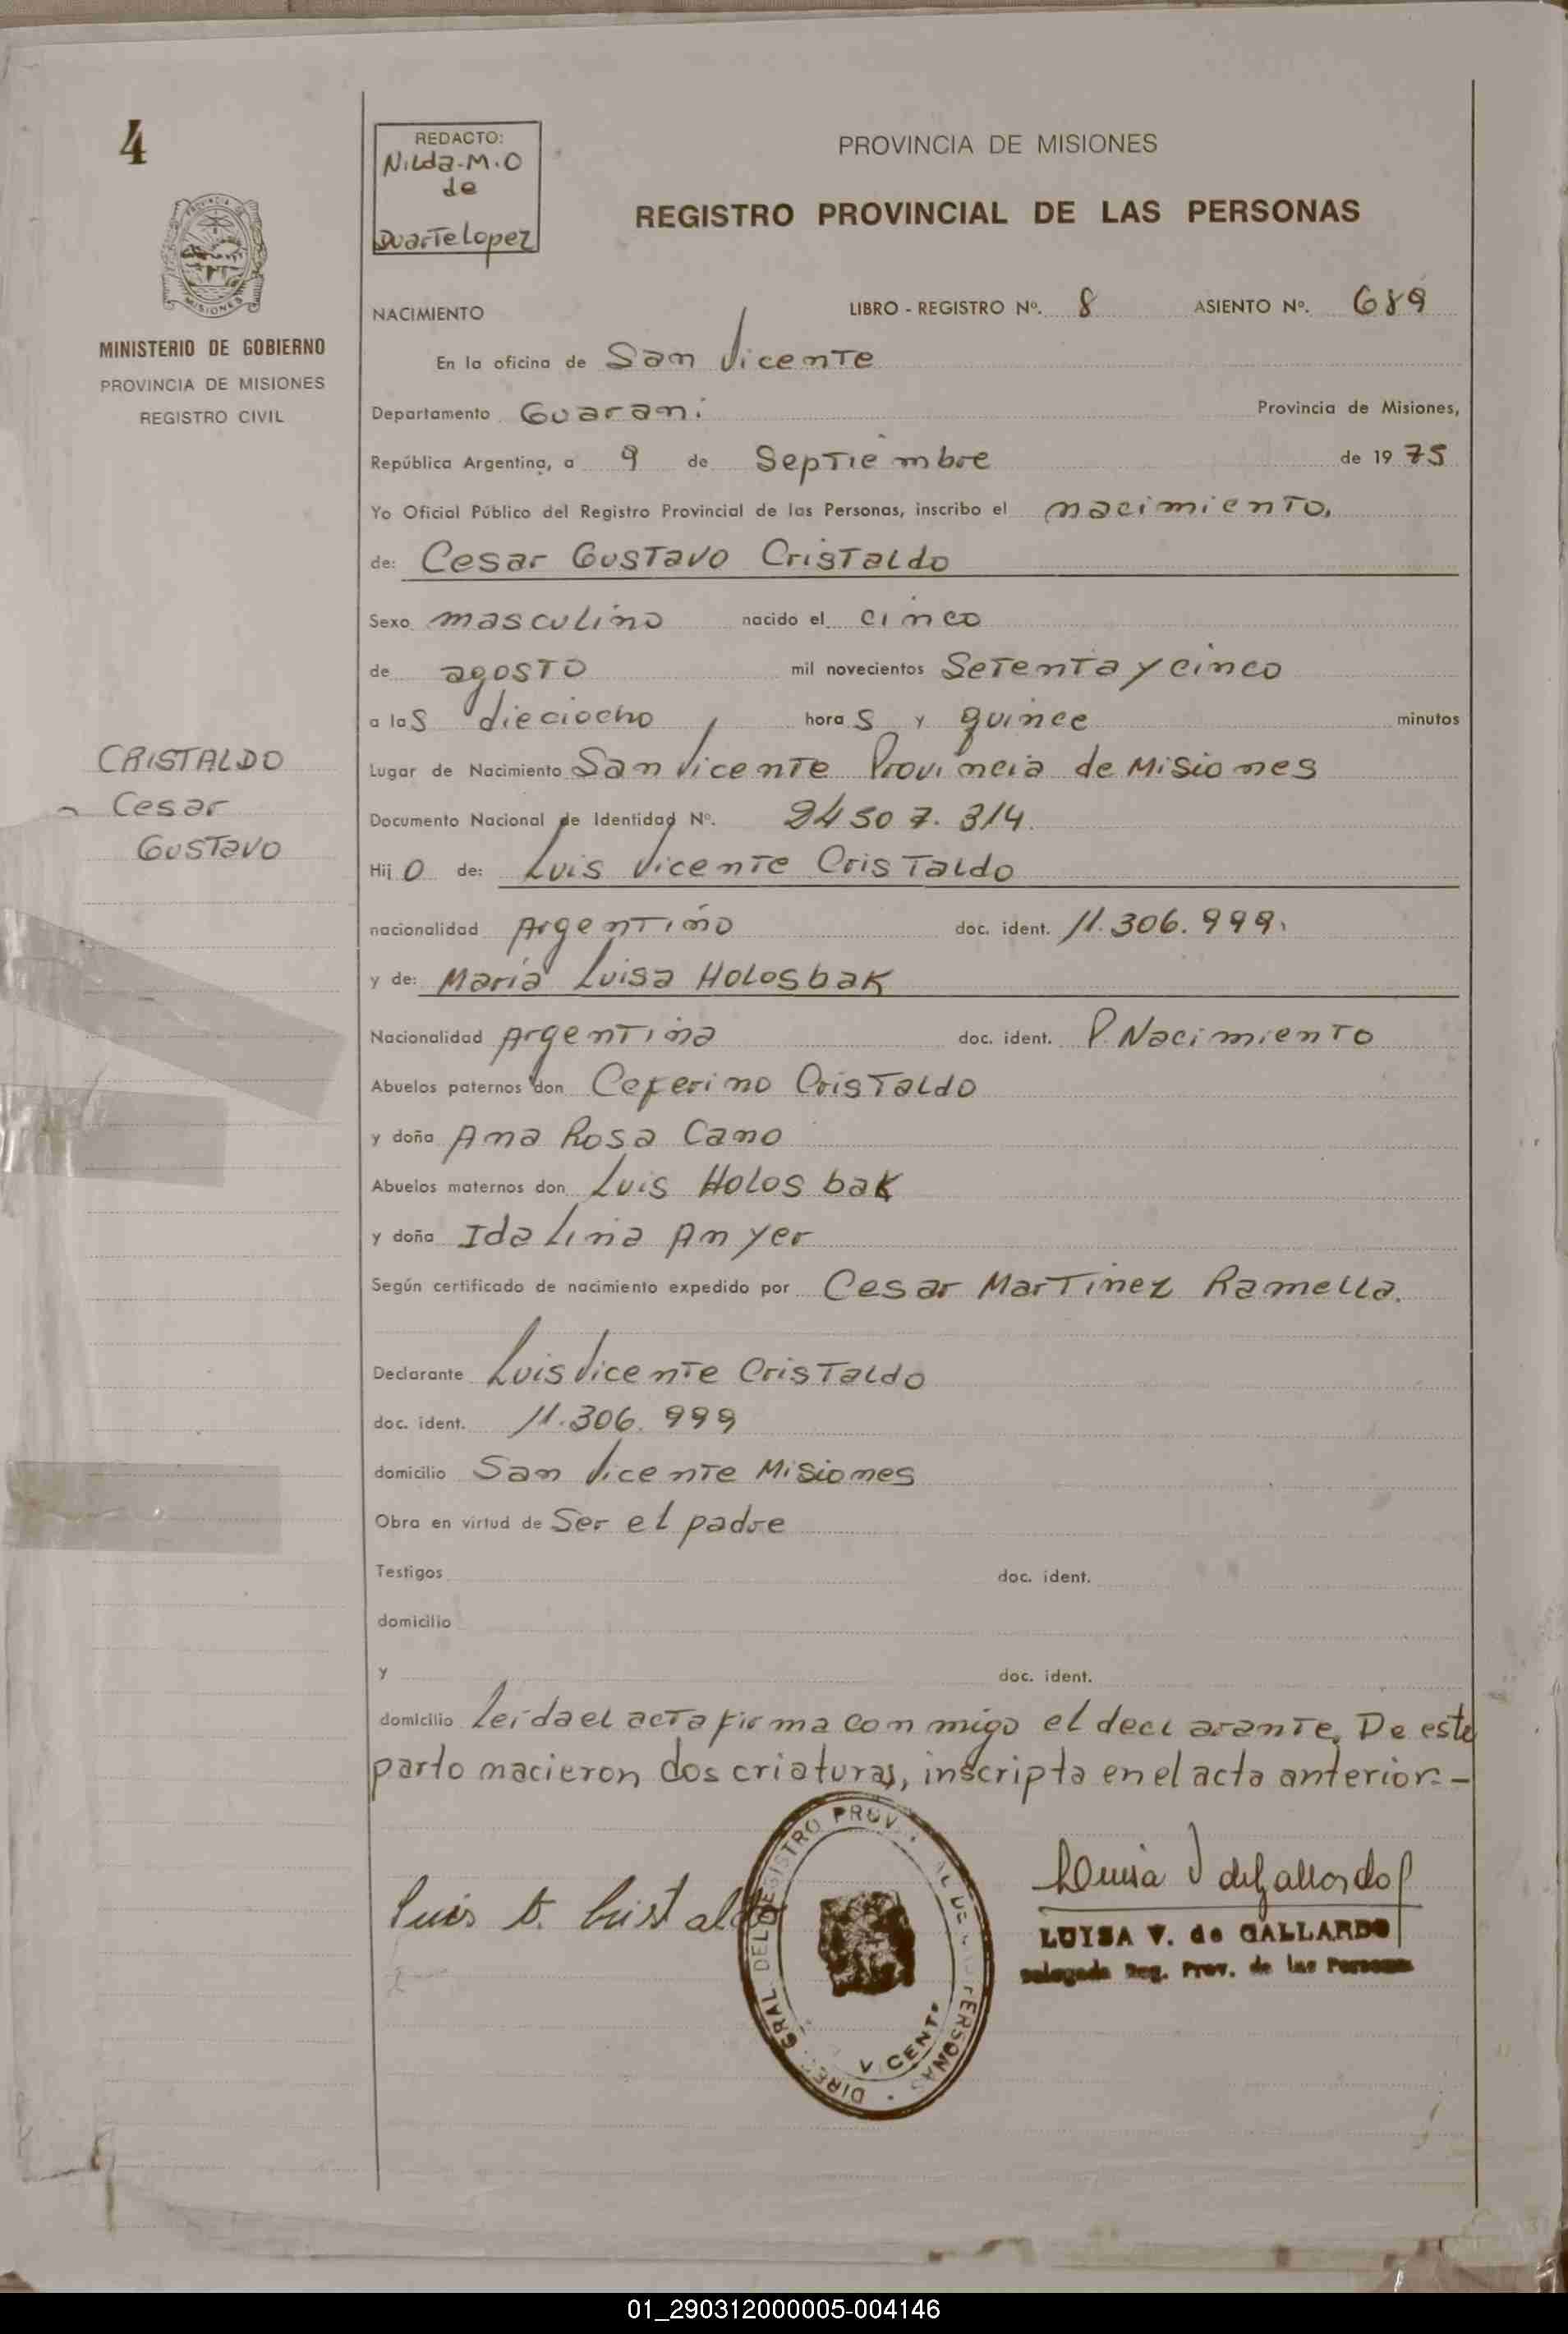 4
REDACTO:
Nilda.M.O
de
Duarte Lopez
PROVINCIA DE MISIONES
REGISTRO PROVINCIAL DE LAS PERSONAS
MISIONES
MINISTERIO DE GOBIERNO
PROVINCIA DE MISIONES
REGISTRO CIVIL
NACIMIENTO LIBRO - REGISTRO Nº. 8 ASIENTO Nº. 689
En la oficina de San Vicente
Departamento Guarani Provincia de Misiones,
República Argentina, a 9 de Septiembre de 1975
Yo Oficial Público del Registro Provincial de las Personas, inscribo el nacimiento,
de: Cesar Gustavo Cristaldo
Sexo masculino nacido el cinco
de agosto mil novecientos Setenta y cinco
a las dieciocho horas y quince minutos
CRISTALDO
Cesar
Gustavo
Lugar de Nacimiento San Vicente Provincia de Misiones
Documento Nacional de Identidad Nº. 24507.314.
Hijo de: Luis Vicente Cristaldo
nacionalidad Argentino doc. ident. 11.306.999.
y de: Maria Luisa Holosbak
Nacionalidad Argentina doc. ident. P. Nacimiento
Abuelos paternos don Ceferino Cristaldo
y doña Ana Rosa Cano
Abuelos maternos don Luis Holosbak
y doña Idalina Anyer
Según certificado de nacimiento expedido por Cesar Martinez Ramella.
Declarante Luis Vicente Cristaldo
doc. ident. 11.306.999
domicilio San Vicente Misiones
Obra en virtud de Ser el padre
Testigos doc. ident.
domicilio
y doc. ident.
domicilio leida el acta firma conmigo el declarante. De este
parto nacieron dos criaturas, inscripta en el acta anterior.-
Luis V. Cristaldo
DIREC. GRAL. DEL REGISTRO PROV. AL DE PERSONAS
VICENTE
Luisa V de Gallardo
LUISA V. de GALLARDO
Delegada Reg. Prov. de las Personas
01_290312000005-004146